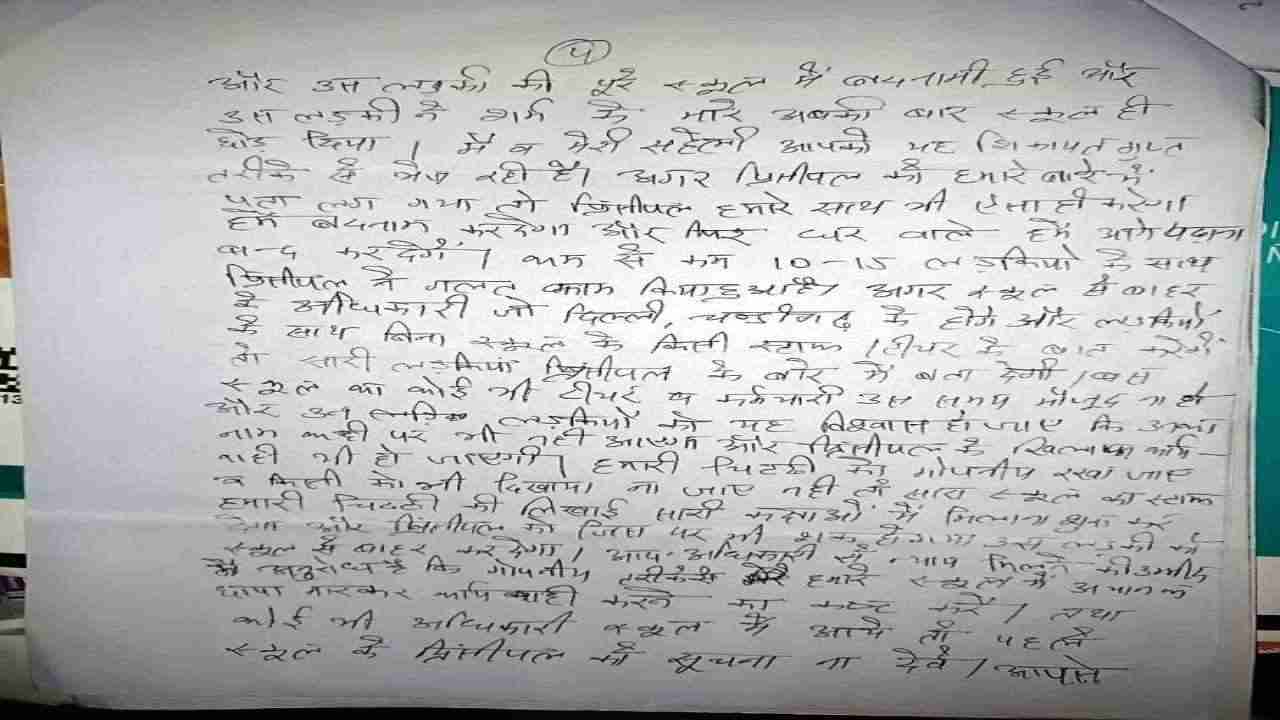 ५
और उस लड़की की पूरे स्कूल में बदनामी हुई और
उस लड़की ने शर्म के मारे अबकी बार स्कूल ही
छोड़ दिया। मैं व मेरी सहेली आपको यह शिकायत गुप्त
तरीके से भेज रही हैं। अगर प्रिंसीपल को हमारे बारे में
पता लग गया तो प्रिंसीपल हमारे साथ भी ऐसा ही करेगा
हमें बदनाम कर देगा और फिर घर वाले हमें आगे पढ़ाना
बन्द कर देगें। कम से कम 10-15 लड़कियों के साथ
प्रिंसीपल ने गलत काम किया हुआ है। अगर स्कूल से बाहर
के अधिकारी जो दिल्ली, चण्डीगढ़ के होंगे और लड़कियों
के साथ बिना स्कूल के किसी स्टाफ / टीचर के बात करेंगें
तो सारी लड़कियां प्रिंसीपल के बारे में बता देगी। बस
स्कूल का कोई भी टीचर व कर्मचारी उस समय मौजूद ना हो
और उन लड़कियों को यह विश्वास हो जाए कि उनका
नाम कहीं पर भी नहीं आएगा और प्रिंसीपल के खिलाफ कार्य-
वाही भी हो जाएगी। हमारी चिटठी को गोपनीय रखा जाए
व किसी को भी दिखाया ना जाए नहीं तो सारा स्कूल का स्टाफ
हमारी चिटठी की लिखाई सारी कक्षाओं में मिलाना शुरू कर
देगा और प्रिंसीपल को जिस पर भी शक हो गया उस लड़की को
स्कूल से बाहर कर देगा। आप अधिकारी से न्याय मिलने की उम्मीद
है अनुरोध है कि गोपनीय तरीके से हमारे स्कूल में अचानक
छापा मारकर कार्यवाही करने का कष्ट करें। तथा
कोई भी अधिकारी स्कूल में आये तो पहले
स्कूल के प्रिंसीपल को सूचना ना देवें। आपसे